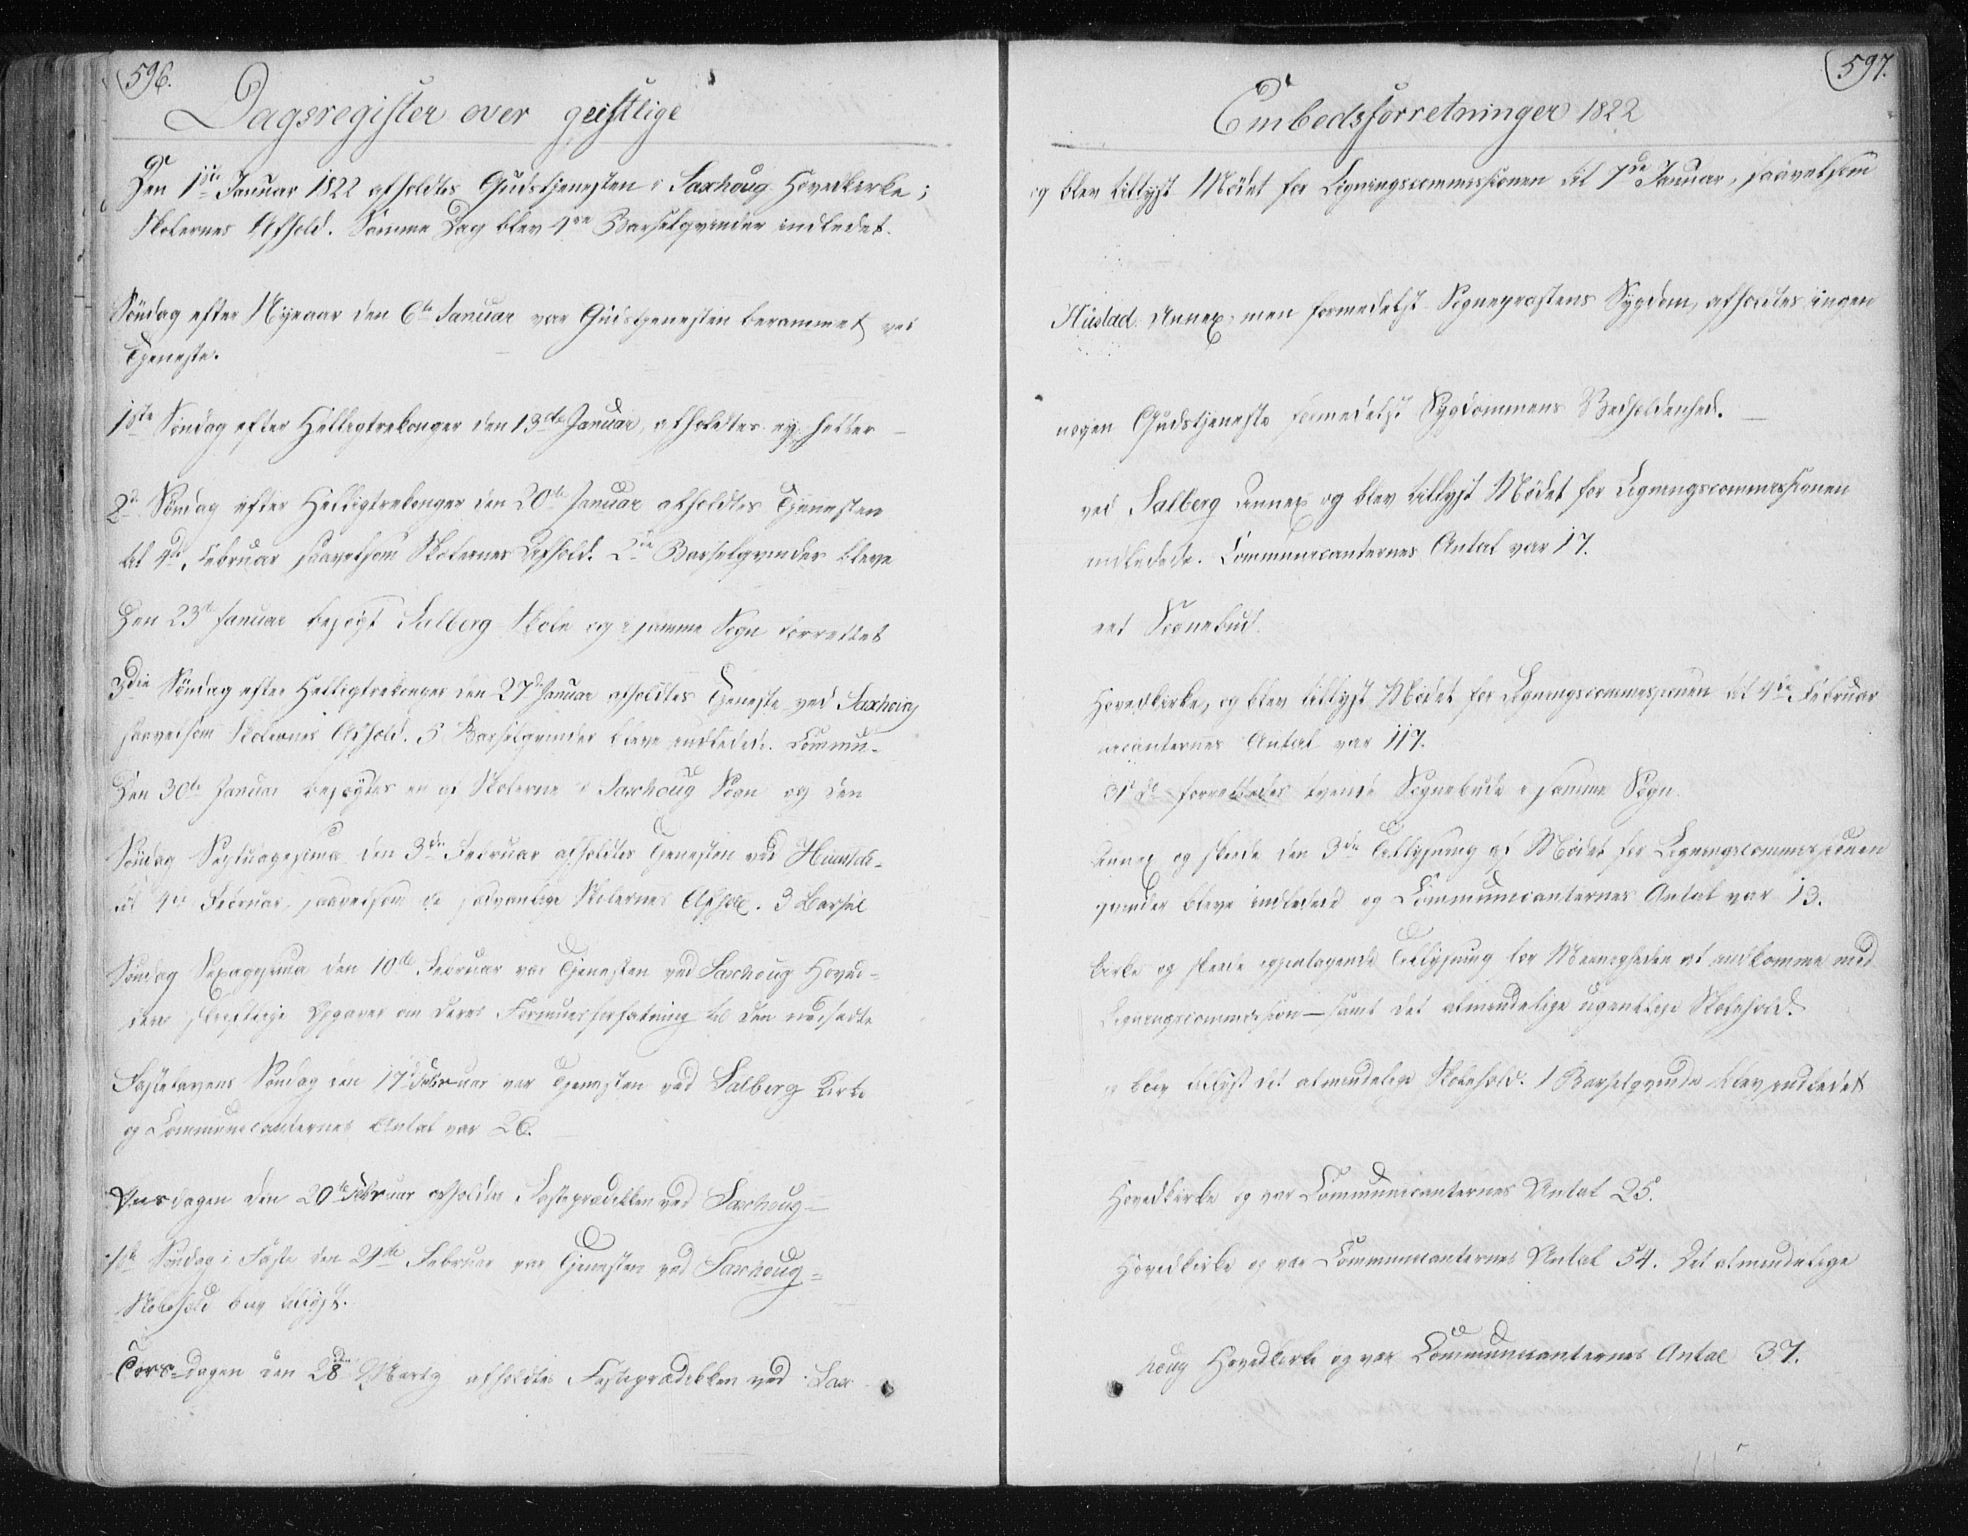 596.
Dagsregister over geistlige
Den 1ste Januar 1822 afholdtes Gudstjenesten i Saxhoug Hovedkirke;
Skolernes Afhold. Samme Dag blev 1 Barselqvinder indledet.
Søndag efter Nyeaar den 6te Januar var Gudstjenesten berammet ved
Tjeneste.
1ste Søndag efter Helligtrekonger den 13de Januar, afholdtes ey heller
2de Søndag efter Helligtrekonger den 20de Januar afholdtes Tjenesten
til 4de Februar saavelsom Skolernes Afhold. 2de Barselqvinder bleve
Den 23de Januar besøgt Salberg Skole og i samme Sogn forrettet
3die Søndag efter Helligtrekonger den 27de Januar afholdtes Tjeneste ved Saxhoug
saavelsom Skolernes Afhold. 5 Barselqvinder bleve indledede. Commu-
Den 30te Januar besøgtes en af Skolerne i Saxhoug Sogn og den
Søndag Septuagesima den 3die Februar afholdtes Tjenesten ved Huustads-
til 4de Februar, saavelsom de sædvanlige Skolernes Afhold. 3 Barsel
Søndag Sexagesima den 10de Februar var Tjenesten ved Saxhoug Hoved-
deres skriftlige Opgaver om deres Formuesforfatning til den nedsatte
Fastelavens Søndag den 17de Februar var Tjenesten ved Salberg Kirke
og Communicanternes Antal var 26.
Onsdagen den 20de Februar afholdtes Fasteprædikken ved Saxhoug-
1ste Søndag i Faste den 24de Februar var Tjenesten ved Saxhoug-
Skolehold blev tillyst.
Torsdagen den 28de Martz afholdtes Fasteprædikken ved Sax
597.
Embedsforretninger 1822
og blev tillyst Mødet for Ligningscommissionen til 7de Januar, saavelsom
Hustad Annex, men formedelst Sognepræstens Sygdom, afholdtes ingen
nogen Gudstjeneste formedelst Sygdommens Vedholdenhed.
ved Salberg Annex og blev tillyst Mødet for Ligningscommissionen
indledede. Communicanternes Antal var 17.
eet Sognebud.
Hovedkirke, og blev tillyst Mødet for Ligningscommissionen til 4de Februar
nicanternes Antal var 117.
31te forrettedes tvende Sognebude i samme Sogn.
Annex og skeede den 3die Tillysning af Mødet for Ligningscommissionen
qvinder bleve indledede og Communicanternes Antal var 13.
kirke og skeede igjentagende Tillysning for Menigheden at indkomme med
Ligningscommission - samt det almindelige ugentlige Skolehold.
og blev tillyst det almindelige Skolehold. 1 Barselqvinde blev indledet
Hovedkirke og var Communicanternes Antal 25.
Hovedkirke og var Communicanternes Antal 54. Det almindelige
houg Hovedkirke og var Communicanternes Antal 37.